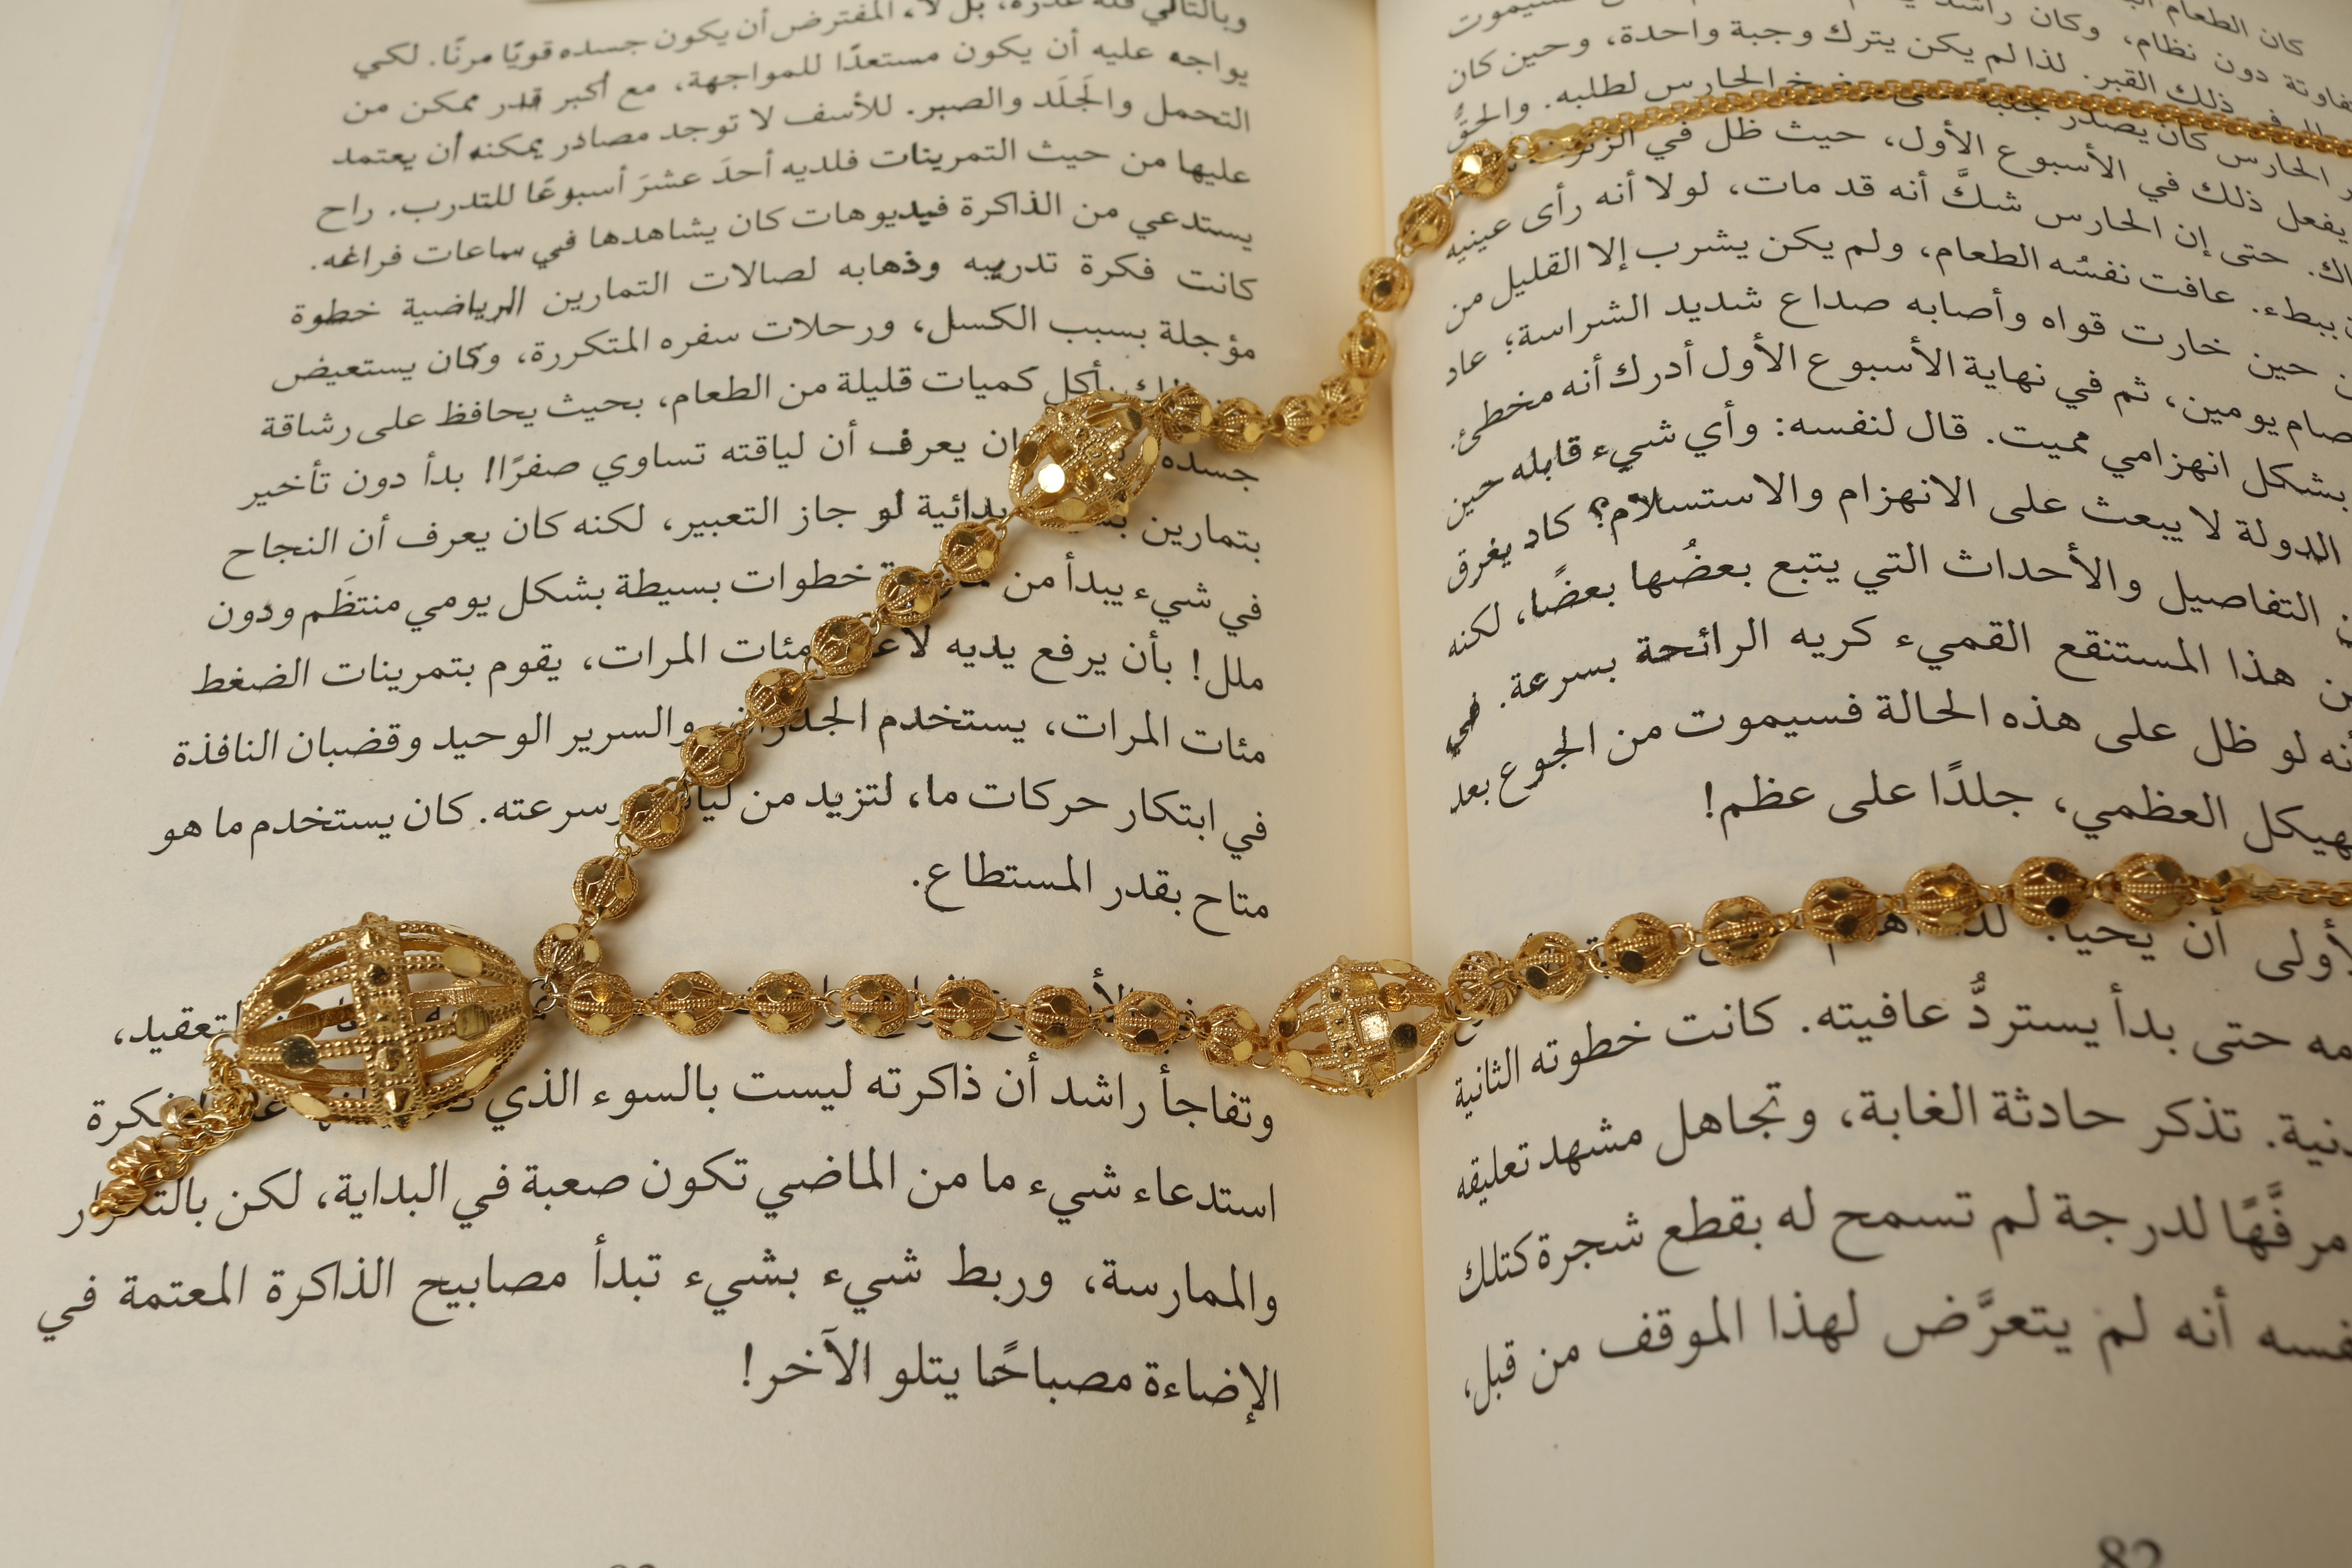 كان الطعام
دون نظام، وكان راشد
ذلك القبر. لذا لم يكن يترك وجبة واحدة، وحين كان
الحارس كان يصدر الحارس لطلبه. والحقُّ
يفعل ذلك في الأسبوع الأول، حيث ظل في
حتى إن الحارس شكَّ أنه قد مات، لولا أنه رأى عينيه
ببطء. عافت نفسُه الطعام، ولم يكن يشرب إلا القليل من
حين خارت قواه وأصابه صداع شديد الشراسة؛ عاد
صام يومين، ثم في نهاية الأسبوع الأول أدرك أنه مخطئ.
بشكل انهزامي مميت. قال لنفسه: وأي شيء قابله حين
الدولة لا يبعث على الانهزام والاستسلام؟ كاد يغرق
التفاصيل والأحداث التي يتبع بعضُها بعضًا، لكنه
هذا المستنقع القميء كريه الرائحة بسرعة. في
لو ظل على هذه الحالة فسيموت من الجوع بعد
العظمي، جلدًا على عظم!
أن يحيا.
حتى بدأ يستردُّ عافيته. كانت خطوته الثانية
تذكر حادثة الغابة، وتجاهل مشهد تعليقه
مرفَّهًا لدرجة لم تسمح له بقطع شجرة كتلك
أنه لم يتعرَّض لهذا الموقف من قبل،
82
وبالتالي بل لا، المفترض أن يكون جسده قويًا مرنًا. لكي
يواجه عليه أن يكون مستعدًا للمواجهة، مع أكبر قدر ممكن من
التحمل والجَلَد والصبر. للأسف لا توجد مصادر يمكنه أن يعتمد
عليها من حيث التمرينات فلديه أحدَ عشرَ أسبوعًا للتدرب. راح
يستدعي من الذاكرة فيديوهات كان يشاهدها في ساعات فراغه.
كانت فكرة تدريبه وذهابه لصالات التمارين الرياضية خطوة
مؤجلة بسبب الكسل، ورحلات سفره المتكررة، وكان يستعيض
يأكل كميات قليلة من الطعام، بحيث يحافظ على رشاقة
جسده يعرف أن لياقته تساوي صفرًا! بدأ دون تأخير
بتمارين بدائية لو جاز التعبير، لكنه كان يعرف أن النجاح
في شيء يبدأ من خطوات بسيطة بشكل يومي منتظَم ودون
ملل! بأن يرفع يديه لأعلى مئات المرات، يقوم بتمرينات الضغط
مئات المرات، يستخدم الجدران والسرير الوحيد وقضبان النافذة
في ابتكار حركات ما، لتزيد من وسرعته. كان يستخدم ما هو
متاح بقدر المستطاع.
التعقيد،
وتفاجأ راشد أن ذاكرته ليست بالسوء الذي فكرة
استدعاء شيء ما من الماضي تكون صعبة في البداية، لكن بالتكرار
والممارسة، وربط شيء بشيء تبدأ مصابيح الذاكرة المعتمة في
الإضاءة مصباحًا يتلو الآخر!